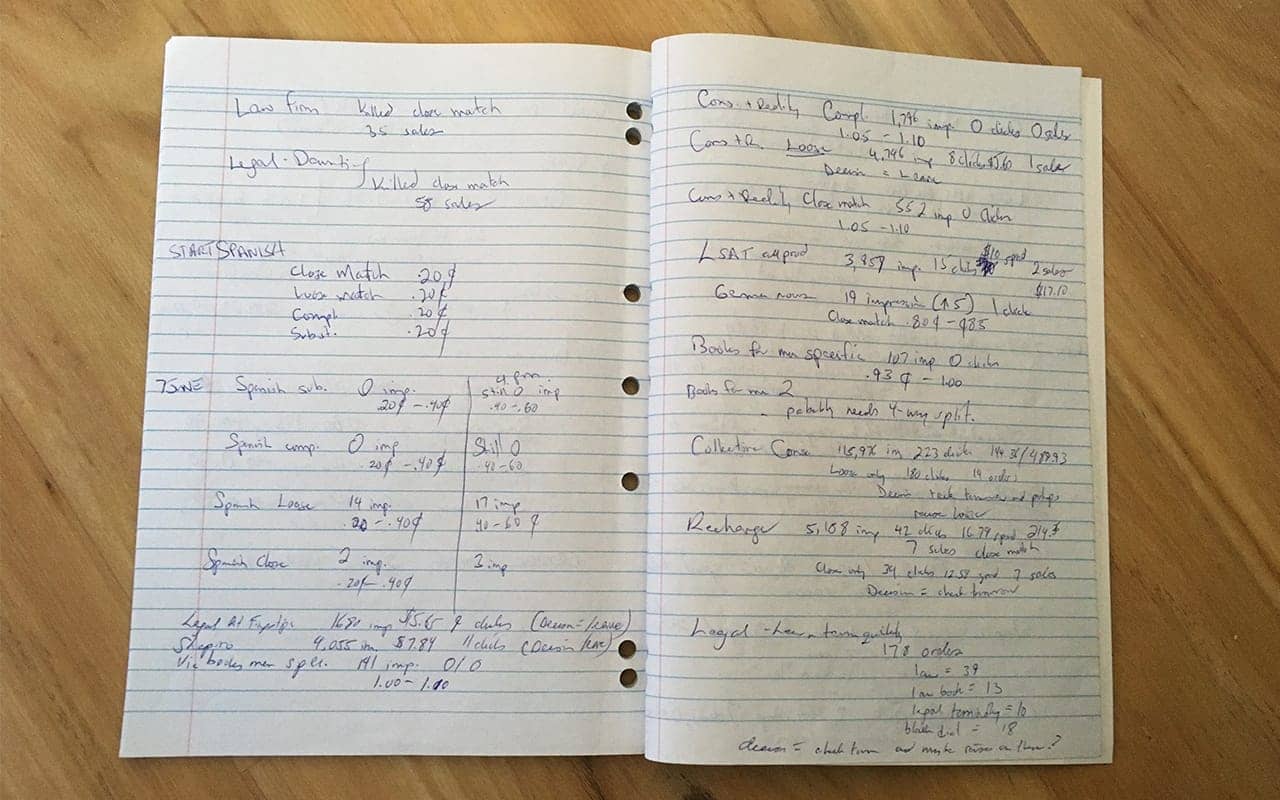 Law firm killed close match
35 sales
Legal-
killed close match
58 sales
START SPANISH
Close Match .20¢
Loose match .20¢
Compl .20¢
Subst. .20¢
7 JUNE Spanish sub. 0 imp. 4 pm. still 0 imp
20¢ - .40¢ .40-.60
Spanish comp. 0 imp Still 0
.20¢ - .40¢ .40-60
Spanish Loose 14 imp. 17 imp
.20 - .40¢ 40-60¢
Spanish Close 2 imp. 3 imp
.20¢ - .40¢
Legal Ad 1680 imp $5.65 9 clicks (Decision = leave)
Shapiro 9,055 im. $7.84 11 clicks (Decision leave)
Vic books men spec. imp. 0/0
1.00 - 1.10
Cons. + Reality Compl. 1,796 imp 0 clicks 0 sales
1.05 - 1.10
Cons + R. Loose 4,796 imp 8 clicks 1 sale
Decision = Leave
Cons + Reality Close match 552 imp 0 clicks
1.05 - 1.10
LSAT all prod 3,959 imp. 15 clicks $10 spend 2 sales
$17.10
German nouns 19 impression (↑5) 1 click
Close match .80¢ - ¢85
Books for men specific 107 imp 0 clicks
.93¢ - 1.00
Books for men 2
- probably needs 4-way split.
Collective Consc 223 clicks
Loose only 180 clicks 19 orders
Decision check tomorrow and perhaps
Recharge 5,108 imp 42 clicks 16.79 spend
7 sales close match
Close only 39 clicks 12.58 spend 7 sales
Decision = check tomorrow
Legal - Law
178 orders
law = 39
law book = 13
legal terminology = 10
= 18
decision = check tom and maybe raise on these?